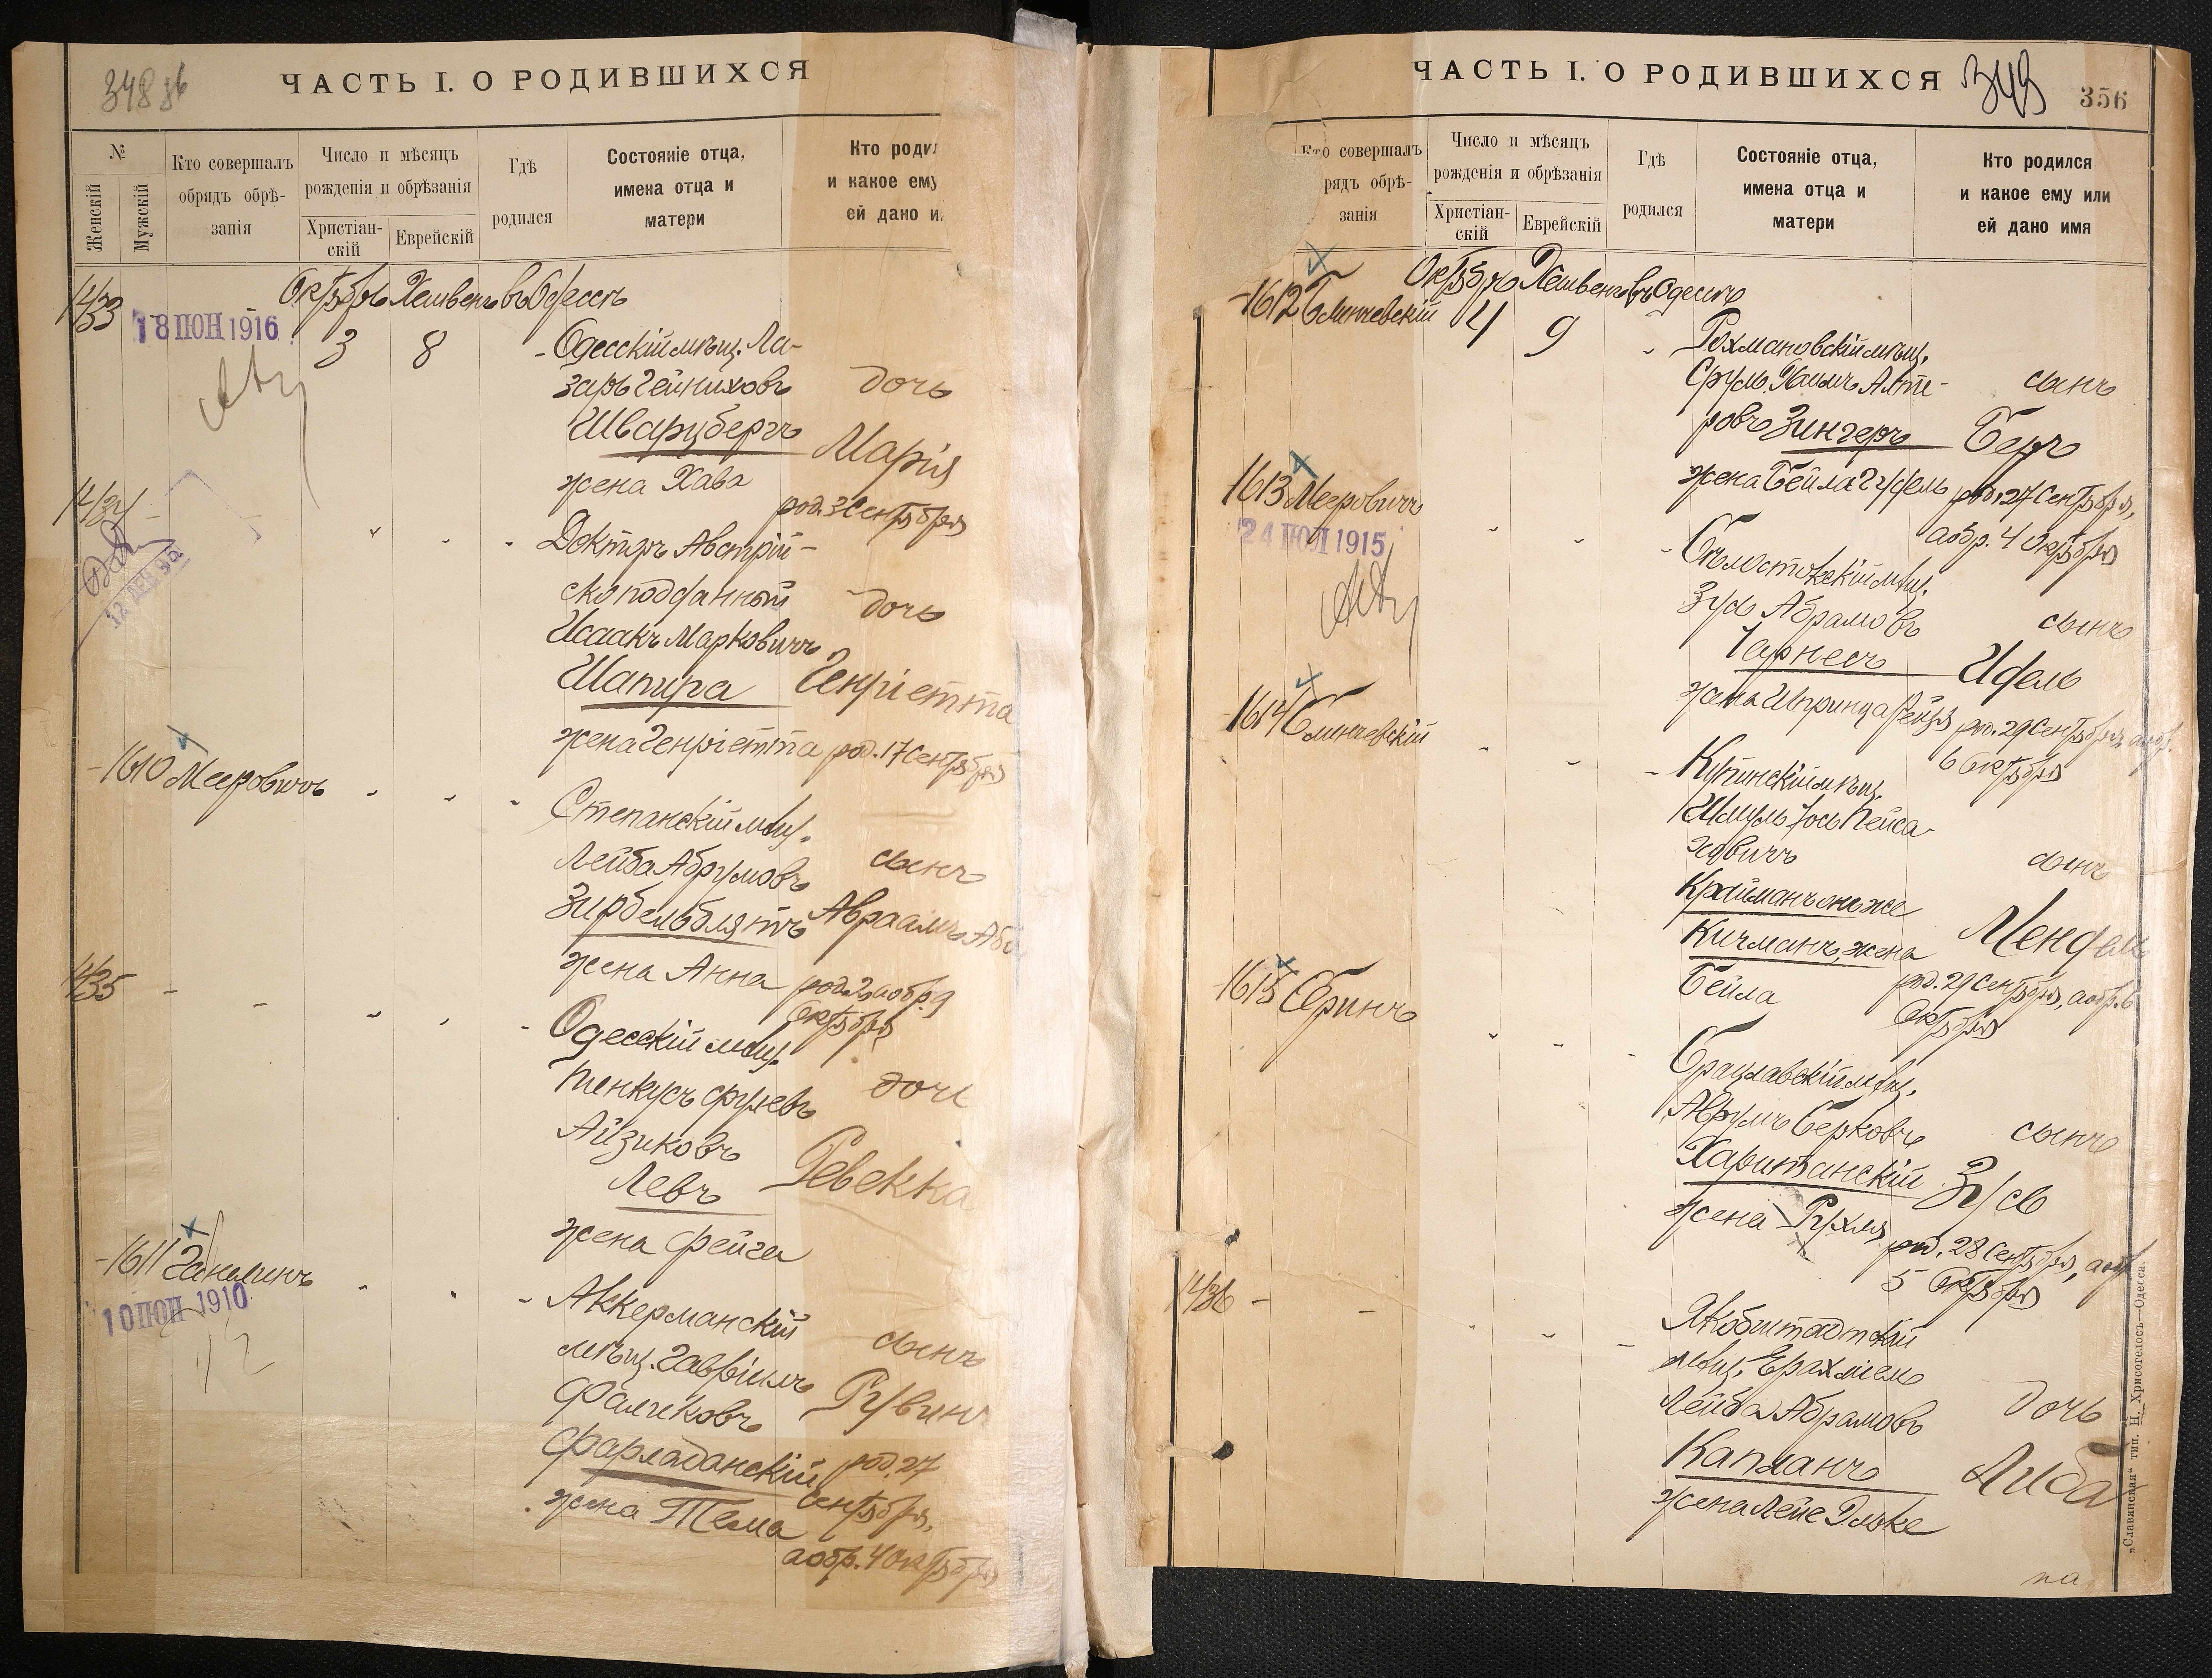 348 об
ЧАСТЬ I. О РОДИВШИХСЯ
№
Женскій
Мужскій
Кто совершалъ
обрядъ обрѣ-
занія
Число и мѣсяцъ
рожденія и обрѣзанія
Христіан-
скій
Еврейскій
Гдѣ
родился
Состояніе отца,
имена отца и
матери
Кто роди
и какое ему
ей дано и
Октября Хешвенъ въ Одессѣ
1433
18 ІЮН 1916
3 8 - Одесскій мѣщ. Ла-
зарь Гейниховъ дочь
Шварцбергъ Марія
жена Хава
род. 3 Сентября
1434 -
Докторъ Австрій-
скоподданный дочь
Исаакъ Марковичъ
Шапира Генріетта
жена Генріетта род. 17 Сентября
-1610 Мееровичъ
Степанскій мѣщ.
Лейба Абрумовъ сынъ
Зирбельблятъ Авраамъ Аб
жена Анна род. 2, а обр. 9
Октября
1435 - -
- Одесскій мѣщ.
Пенкусъ Срулевъ дочь
Айзиковъ
Левъ Ревекка
жена Фейга
-1611 Ганелинъ
10 ІЮН 1910
- Аккерманскій
мѣщ. Гавріилъ сынъ
Фалековъ Рувин
Фарладанскій род. 27
жена Тема Сентября,
а обр. 4 Октября
ЧАСТЬ I. О РОДИВШИХСЯ
349
356
Кто совершалъ
рядъ обрѣ-
занія
Число и мѣсяцъ
рожденія и обрѣзанія
Христіан-
скій
Еврейскій
Гдѣ
родился
Состояніе отца,
имена отца и
матери
Кто родился
и какое ему или
ей дано имя
Октября Хешвенъ въ Одессѣ
-1612 4 9
- Рохмановскій мѣщ.
Сруль Хаимъ Алте- сынъ
ровъ Зингеръ Беръ
жена Бейла Гудель род. 27 Сентября,
а обр. 4 Октября
1613 Мееровичъ
24 ІЮЛ 1915
- Бѣлостокскій мѣщ.
Зусь Абрамовъ сынъ
Гарнесъ Идель
жена Шпринца Рейзя род. 29 Сентября, а обр.
6 Октября
-1614
- Купинскій мѣщ.
Шмуль Іось Пейса-
ховичъ сынъ
Крайманъ онъ же
Кичманъ, жена Мендель
Бейла род. 29 Сентября, а обр. 6
Октября
1615 Бринъ
Брацлавскій мѣщ.
Аврумъ Берковъ сынъ
Хаританскій Зусь
жена Рухля род. 28 Сентября, а обр
5 Октября
1436 - -
Якобштадтскій
мѣщ. Ерахміель
Лейба Абрамовъ дочь
Капланъ Либа
жена Лейе Эльке
на
„Славянская“ тип. Н. Хрисогелосъ—Одесса.